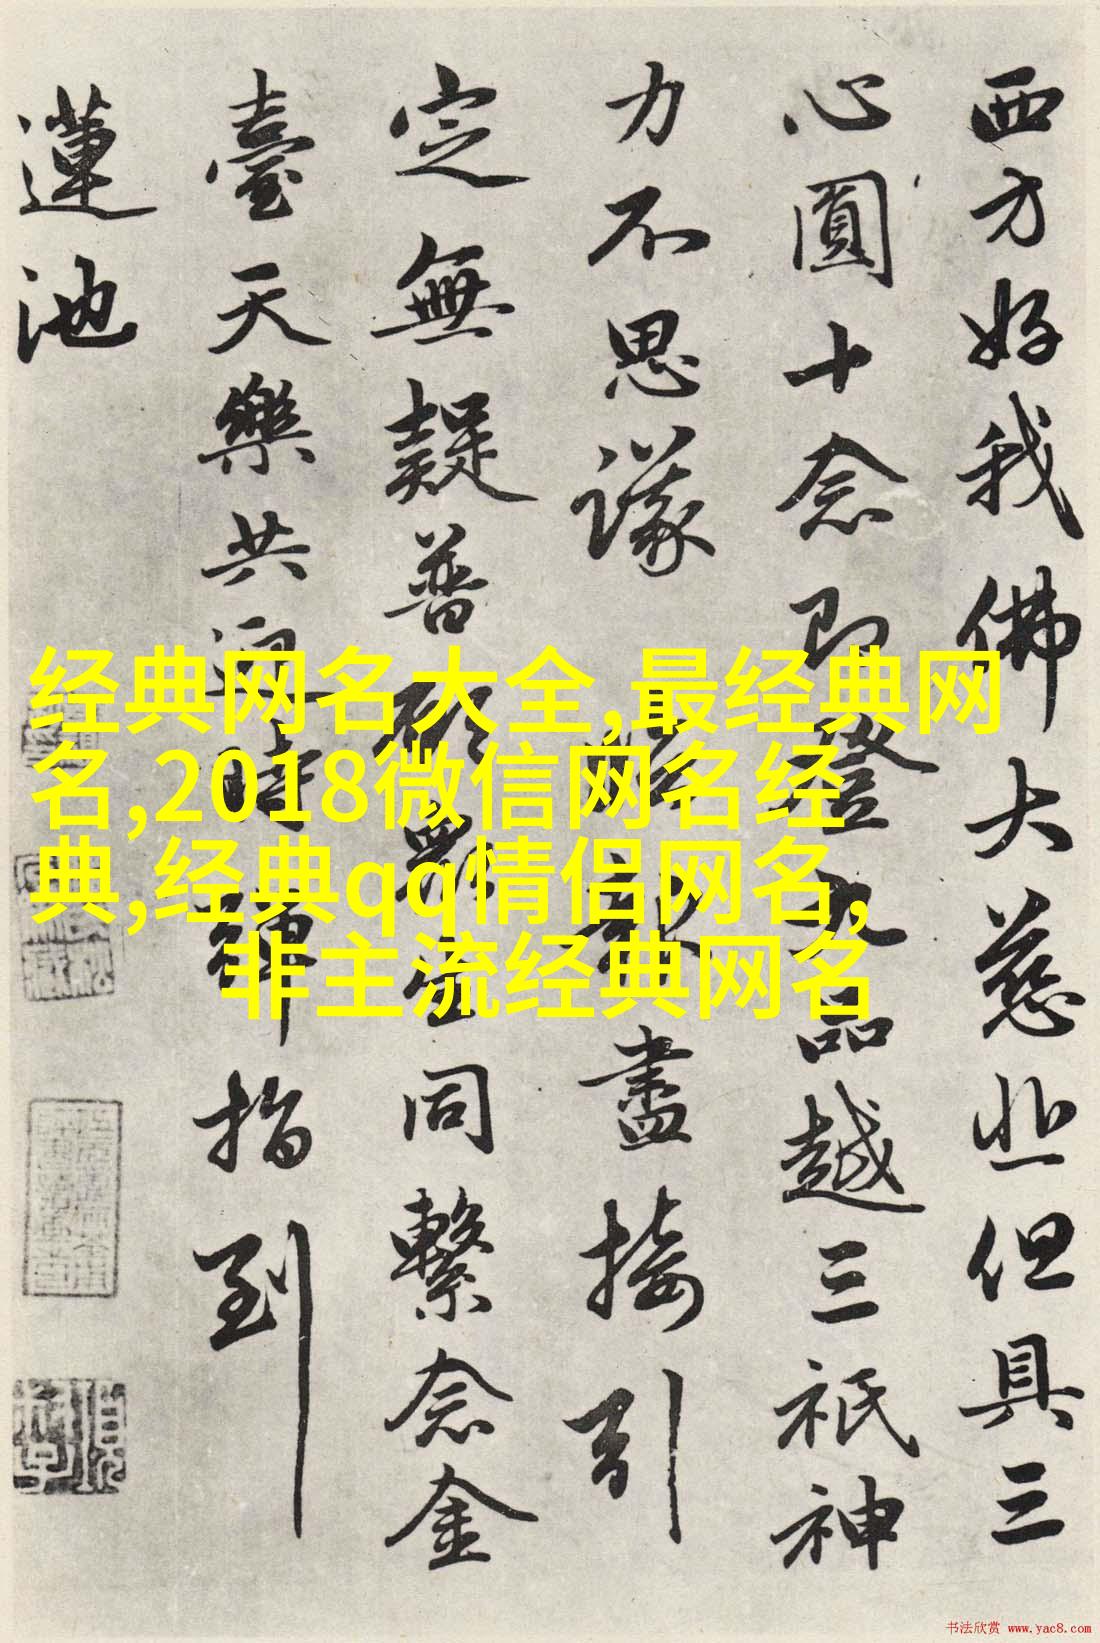 西方好我佛大慈悲但具三
心圓十念即登九品越三祇神
力不思議盡接引
定無疑普願眾生同繫念金
臺天樂共迎時彈指到
蓮池
经典网名大全,最经典网
名,2018微信网名经
典,经典qq情侣网名,
非主流经典网名
书法欣赏 www.yac8.com